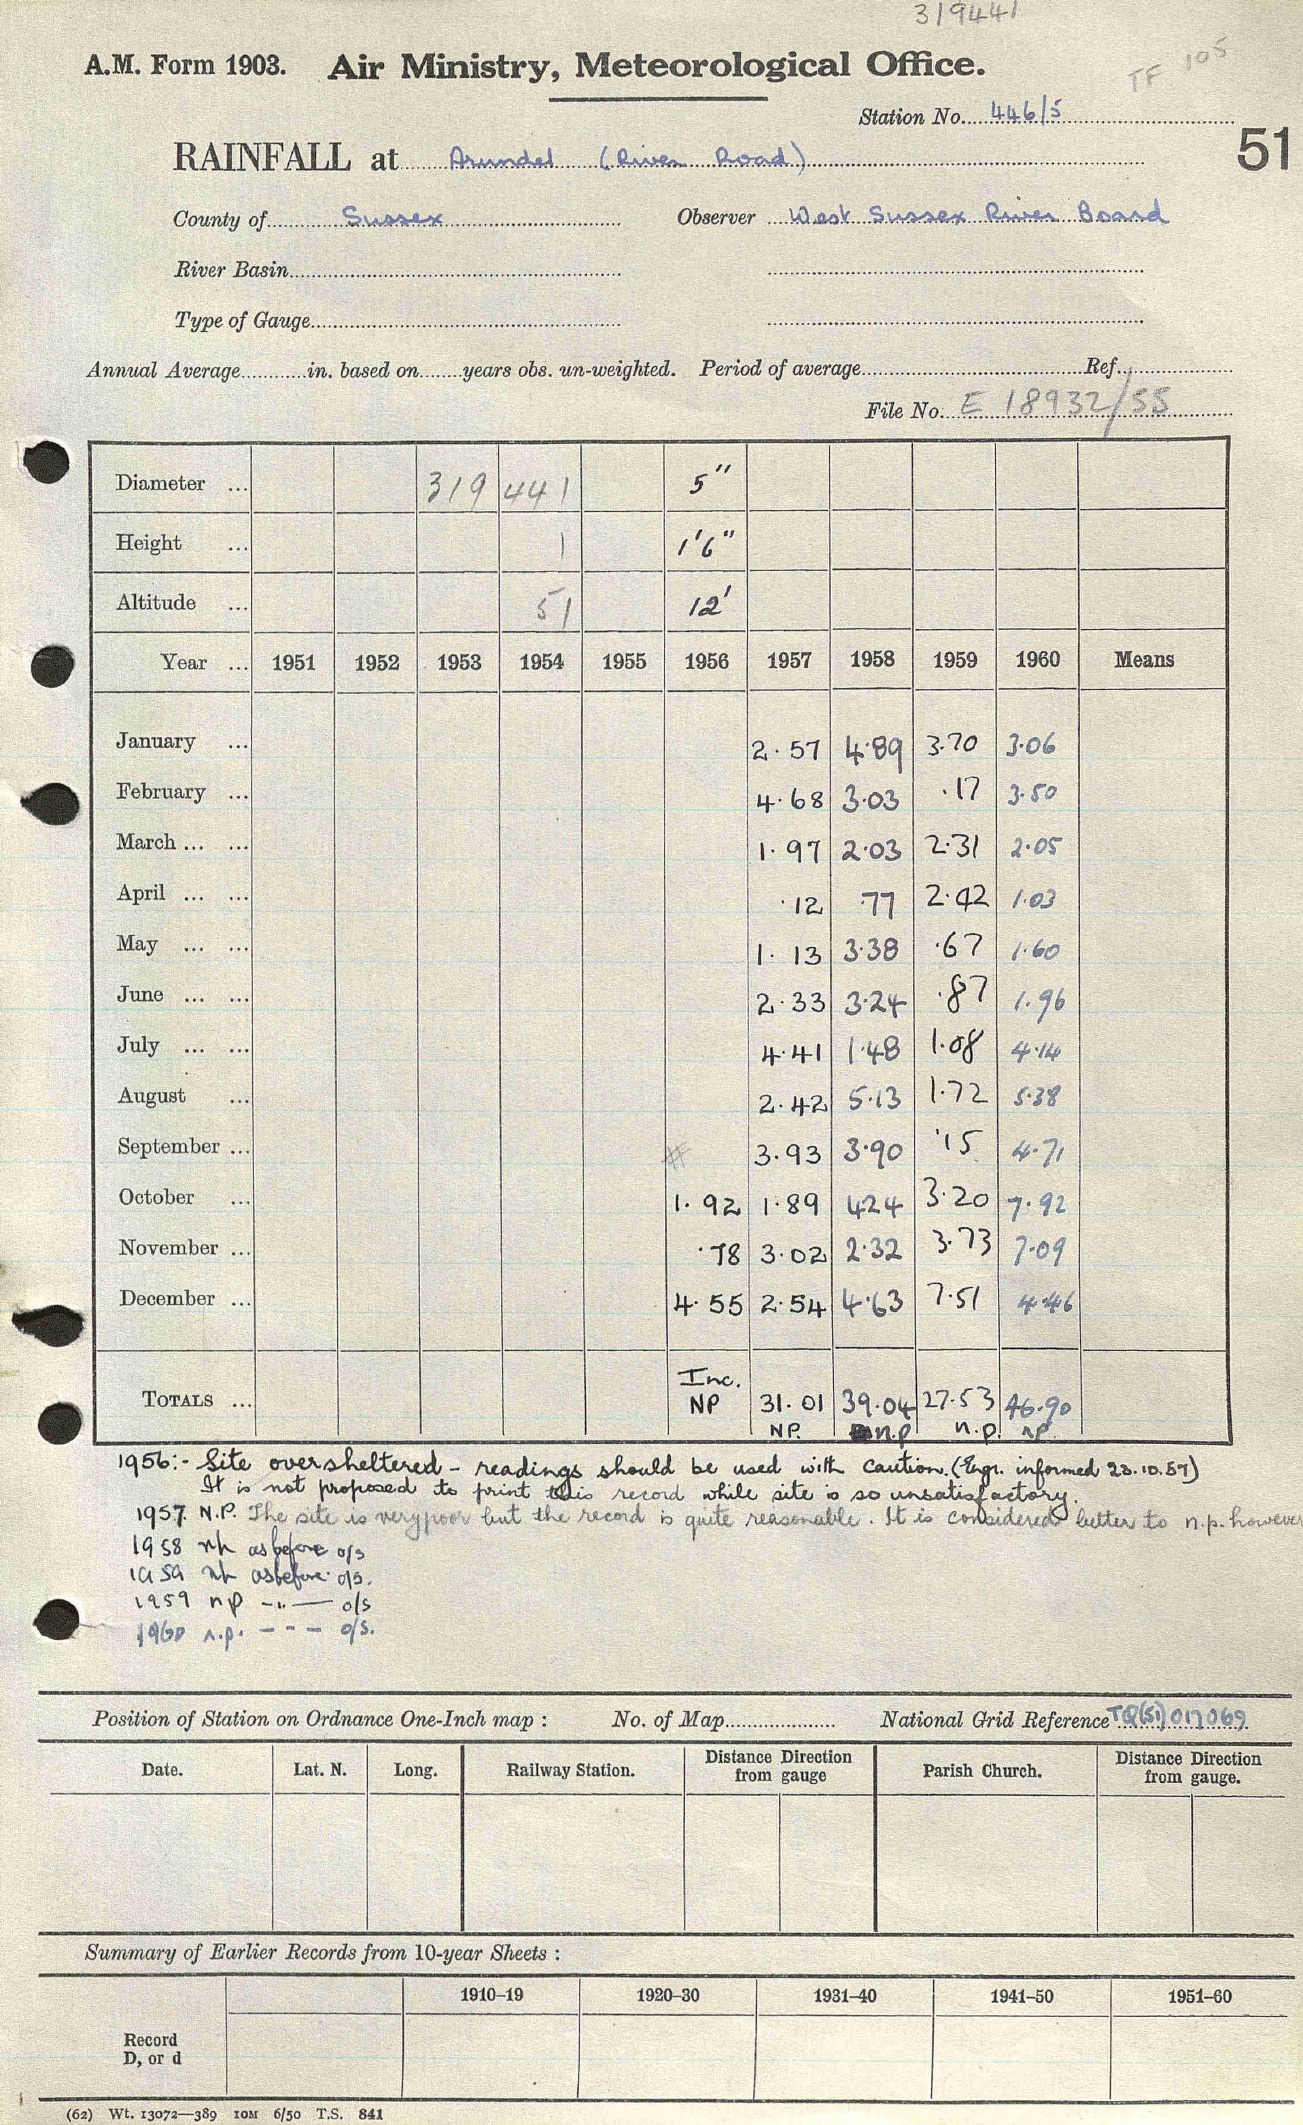 319441
A.M. Form 1903. Air Ministry, Meteorological Office.
TF 105
Station No. 446/5
RAINFALL at Arundel (River Road)
51
County of Sussex Observer West Sussex River Board
River Basin
Type of Gauge
Annual Average in. based on years obs. un-weighted. Period of average Ref.
File No. E 18932/55
Diameter ... 319 441 5"
Height ... 1 1'6"
Altitude ... 51 12'
Year ... 1951 1952 1953 1954 1955 1956 1957 1958 1959 1960 Means
January ... 2.57 4.89 3.70 3.06
February ... 4.68 3.03 .17 3.50
March ... ... 1.97 2.03 2.31 2.05
April ... ... .12 .77 2.42 1.03
May ... ... 1.13 3.38 .67 1.60
June ... ... 2.33 3.24 .87 1.96
July ... ... 4.41 1.48 1.08 4.14
August ... 2.42 5.13 1.72 5.38
September ... # 3.93 3.90 .15 4.71
October ... 1.92 1.89 4.24 3.20 7.92
November ... .78 3.02 2.32 3.73 7.09
December ... 4.55 2.54 4.63 7.51 4.46
Inc.
TOTALS ... NP 31.01 39.04 27.53 46.90
NP. n.p n.p. np.
1956:- Site oversheltered - readings should be used with caution. (Engr. informed 23.10.57)
It is not proposed to print this record while site is so unsatisfactory.
1957. N.P. The site is very poor but the record is quite reasonable. It is considered better to n.p. however
1958 np as before o/s
1959 np as before o/s.
1959 np -"- o/s
1960 n.p. - - - o/s.
Position of Station on Ordnance One-Inch map : No. of Map National Grid Reference TQ(51)017069
Date. Lat. N. Long. Railway Station. Distance Direction from gauge Parish Church. Distance Direction from gauge.
Summary of Earlier Records from 10-year Sheets :
1910–19 1920–30 1931–40 1941–50 1951–60
Record
D, or d
(62) Wt. 13072—389 10M 6/50 T.S. 841